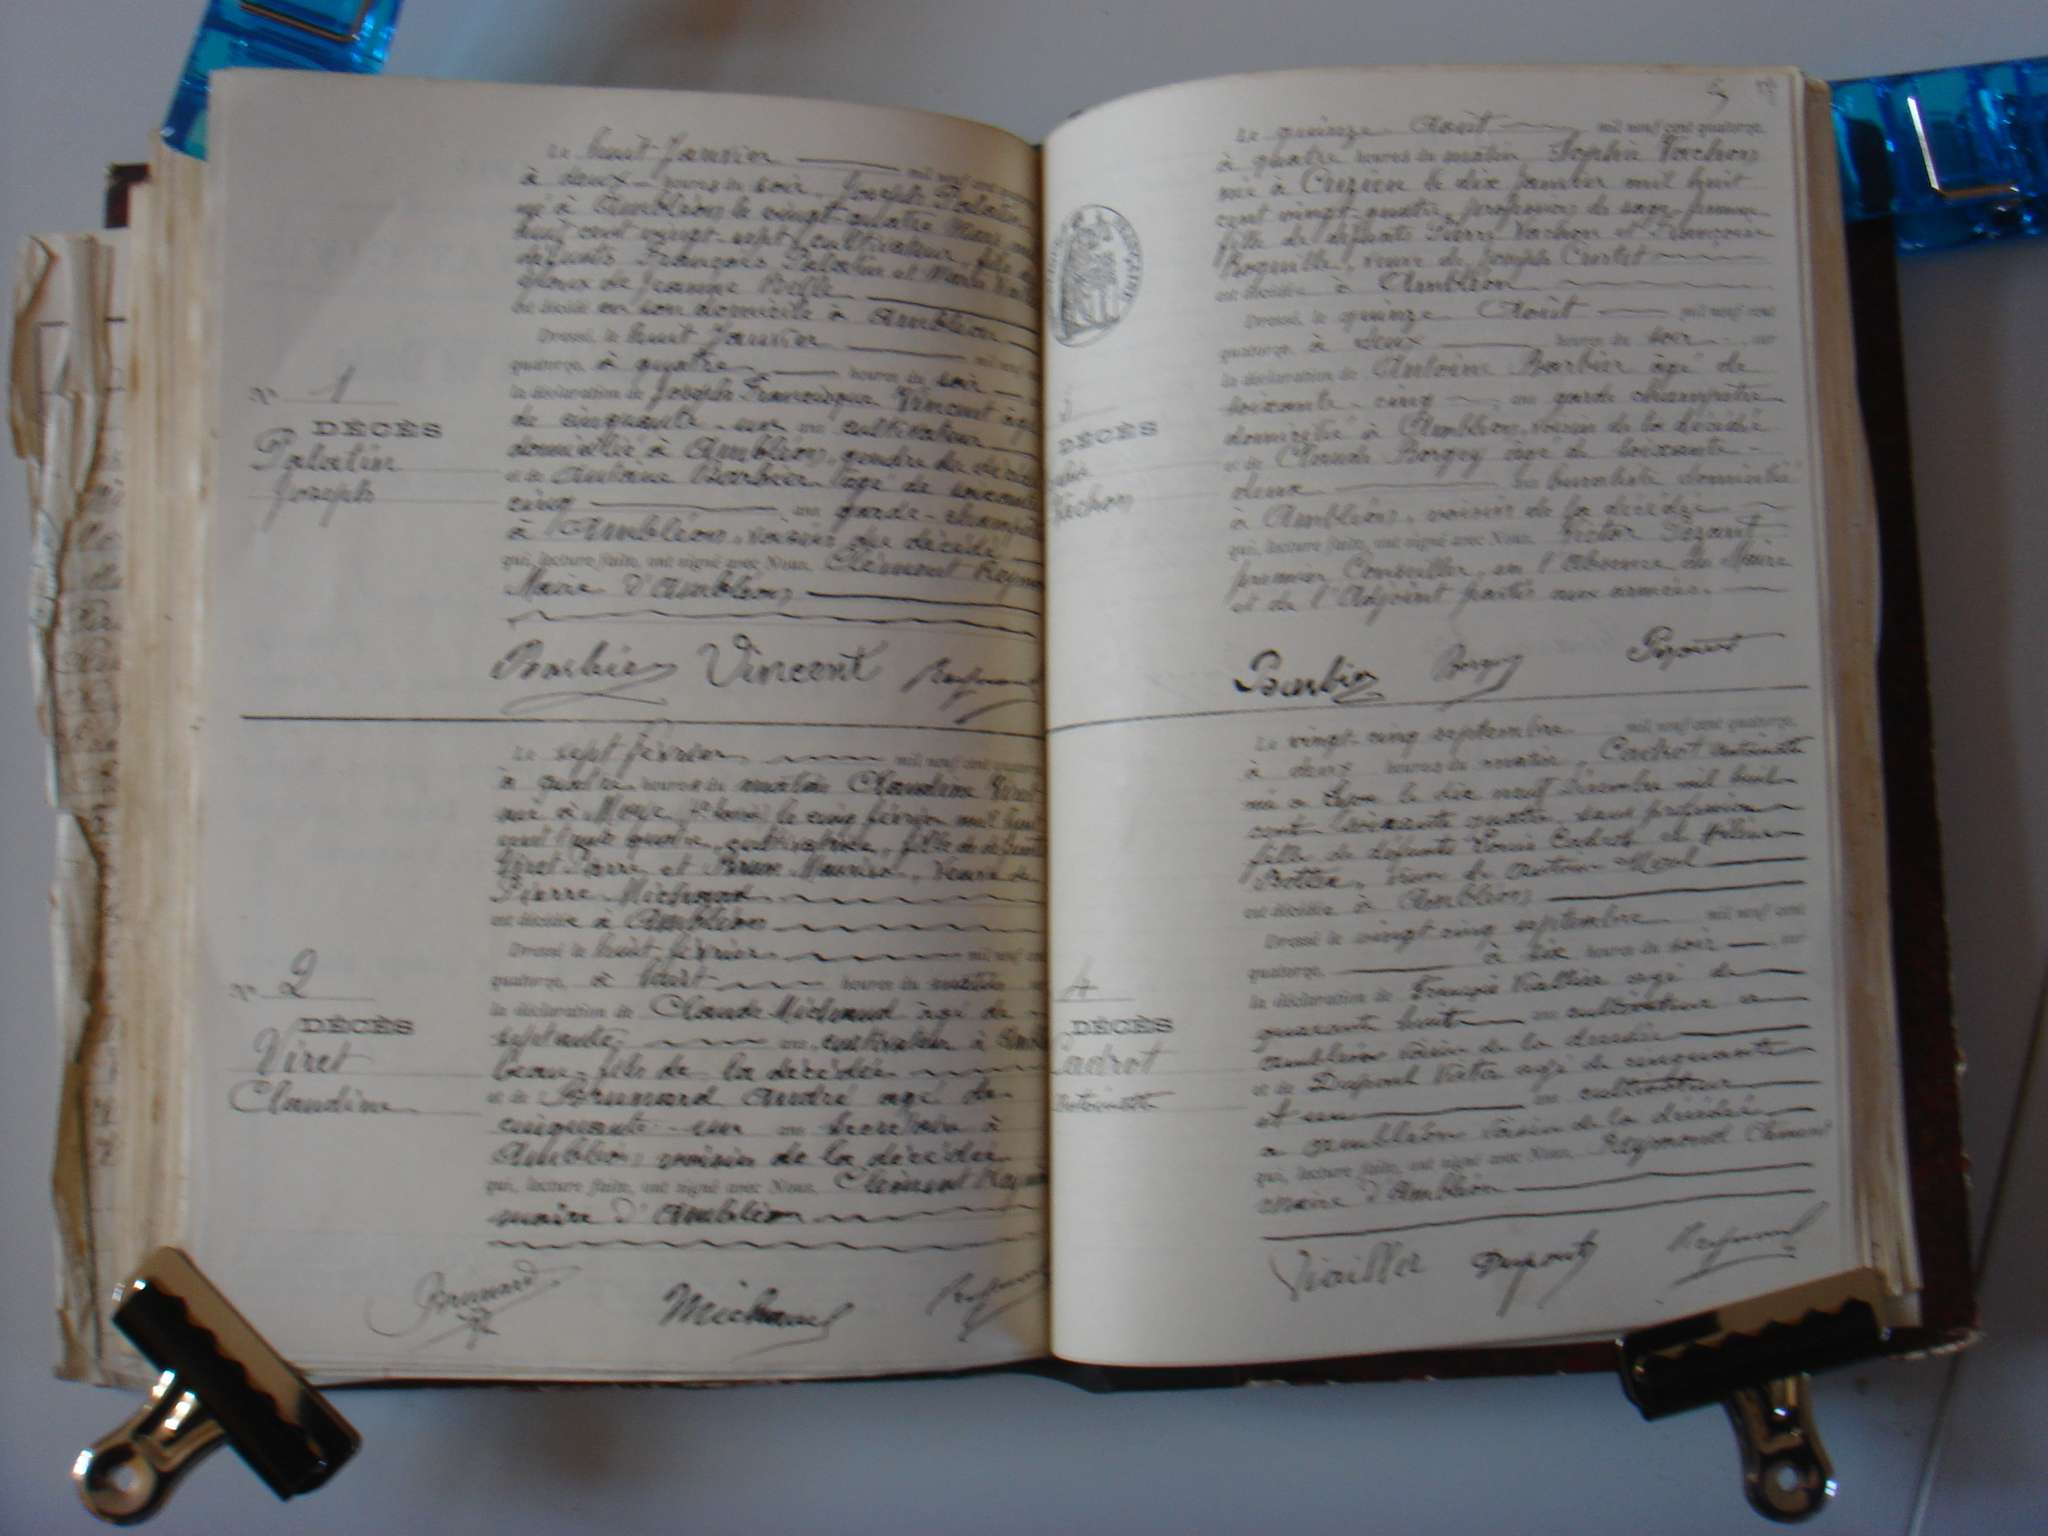 Le huit Janvier mil neuf cent
à deux heures du soir, Joseph Palatin
né à Ambléon le vingt-quatre Mars
huit cent vingt-sept, cultivateur, fils
défunts François Palatin et Marie
époux de Jeanne
est décédé en son domicile à Ambléon
Dressé, le huit Janvier mil neuf
quatorze, à quatre heures du soir
la déclaration de Joseph Francisque Vincent âgé
de cinquante-un ans cultivateur
domicilié à Ambléon, gendre du décédé
et de Antoine Barbier âgé de soixante
cinq ans garde-champêtre
à Ambléon, voisin du décédé
qui, lecture faite, ont signé avec Nous, Clément Reymond
Maire d'Ambléon
N° 1
DÉCÈS
Palatin
Joseph
Barbier Vincent Reymond
Le sept février mil neuf cent quatorze
à quatre heures du matin Claudine Viret
née à le cinq février mil huit
cent quatre, cultivatrice, fille de défunts
Viret Pierre et Maurice, veuve de
Pierre Michaud
est décédée à Ambléon
Dressé le huit février mil neuf cent
quatorze, à huit heures du matin
la déclaration de Claude Michaud âgé de
septante ans, cultivateur à
beau-fils de la décédée
et de Brunard André âgé de
cinquante-un ans secrétaire à
Ambléon, voisin de la décédée
qui, lecture faite, ont signé avec Nous, Clément Reymond
maire d'Ambléon
N° 2
DÉCÈS
Viret
Claudine
Brunard Michaud Reymond
5
Le quinze Août mil neuf cent quatorze,
à quatre heures du matin, Sophie Vachon
née à Cuzieu le dix janvier mil huit
cent vingt-quatre, profession de sage-femme
fille de défunts Pierre Vachon et Françoise
veuve de Joseph
est décédée à Ambléon
Dressé, le quinze Août mil neuf cent
quatorze à deux heures du soir sur
la déclaration de Antoine Barbier âgé de
soixante-cinq ans garde champêtre
domicilié à Ambléon, voisin de la décédée
et de Claude Borgey âgé de soixante-
deux ans buraliste domicilié
à Ambléon, voisin de la décédée
qui, lecture faite, ont signé avec Nous, Victor
premier Conseiller, en l'absence du Maire
et de l'Adjoint partis aux armées.
3
DÉCÈS
Vachon
Barbier Borgey
Le vingt-cinq septembre mil neuf cent quatorze,
à deux heures du matin, Cadrot Antoinette
née à Lyon le dix neuf décembre mil huit
cent soixante quatre, sans profession
fille de défunts Louis Cadrot et
veuve de Antoine
est décédée à Ambléon
Dressé le vingt cinq septembre mil neuf cent
quatorze, à six heures du soir sur
la déclaration de François Viallier âgé de
quarante huit ans cultivateur a
ambléon voisin de la décédée
et de Dupont Victor âgé de cinquante
et un ans cultivateur
a ambléon voisin de la décédée
qui, lecture faite, ont signé avec Nous, Reymond Clément
maire d'Ambléon
4
DÉCÈS
Cadrot
Antoinette
Viallier Dupont Reymond